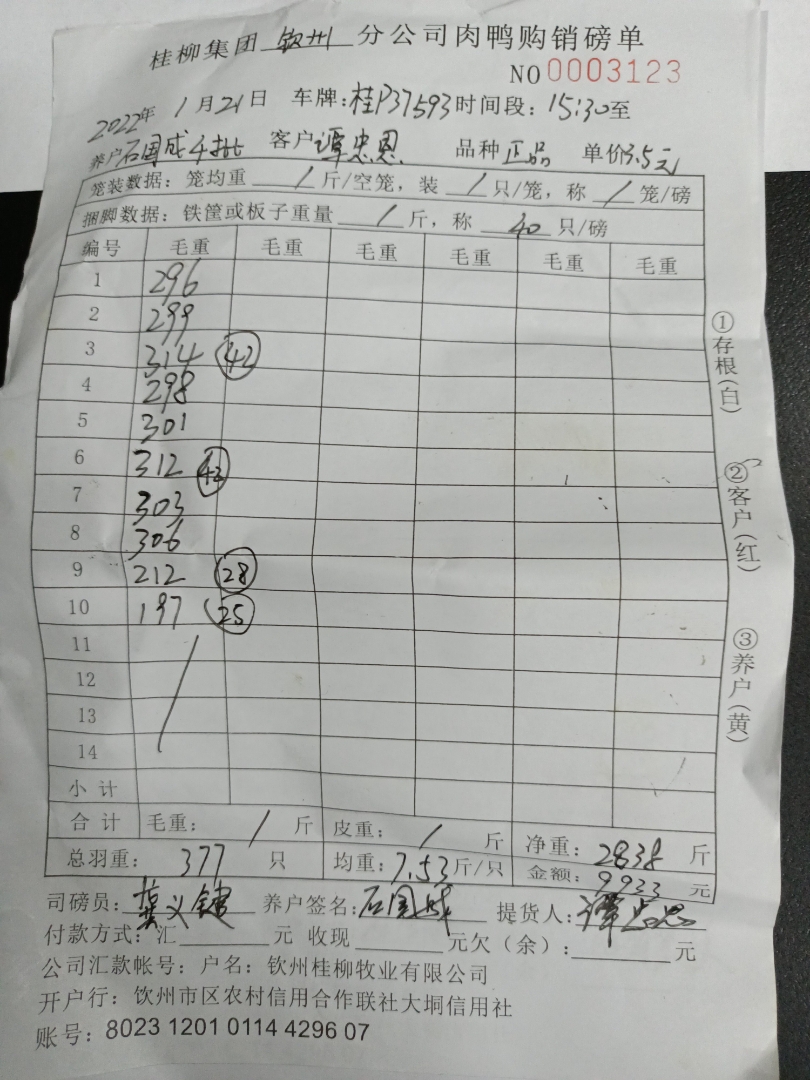 桂柳集团 钦州 分公司肉鸭购销磅单
NO 0003123
2022年 1月21日 车牌:桂P37593 时间段:15:30至
养户 石国成4批 客户 谭忠恩 品种 正品 单价 3.5元
笼装数据:笼均重 / 斤/空笼,装 / 只/笼,称 / 笼/磅
捆脚数据:铁筐或板子重量 / 斤,称 40 只/磅
编号 毛重 毛重 毛重 毛重 毛重 毛重
1 296
2 299
3 314 42
4 298
5 301
6 312 42
7 303
8 306
9 212 28
10 197 25
11
12
13
14
小计
合计 毛重: / 斤 皮重: / 斤 净重: 2838 斤
总羽重: 377 只 均重: 7.53 斤/只 金额: 9933 元
司磅员: 义键 养户签名: 石国成 提货人: 谭忠恩
付款方式:汇 元 收现 元欠(余): 元
公司汇款帐号:户名:钦州桂柳牧业有限公司
开户行:钦州市区农村信用合作联社大垌信用社
账号:8023 1201 0114 4296 07
①存根(白)
②客户(红)
③养户(黄)